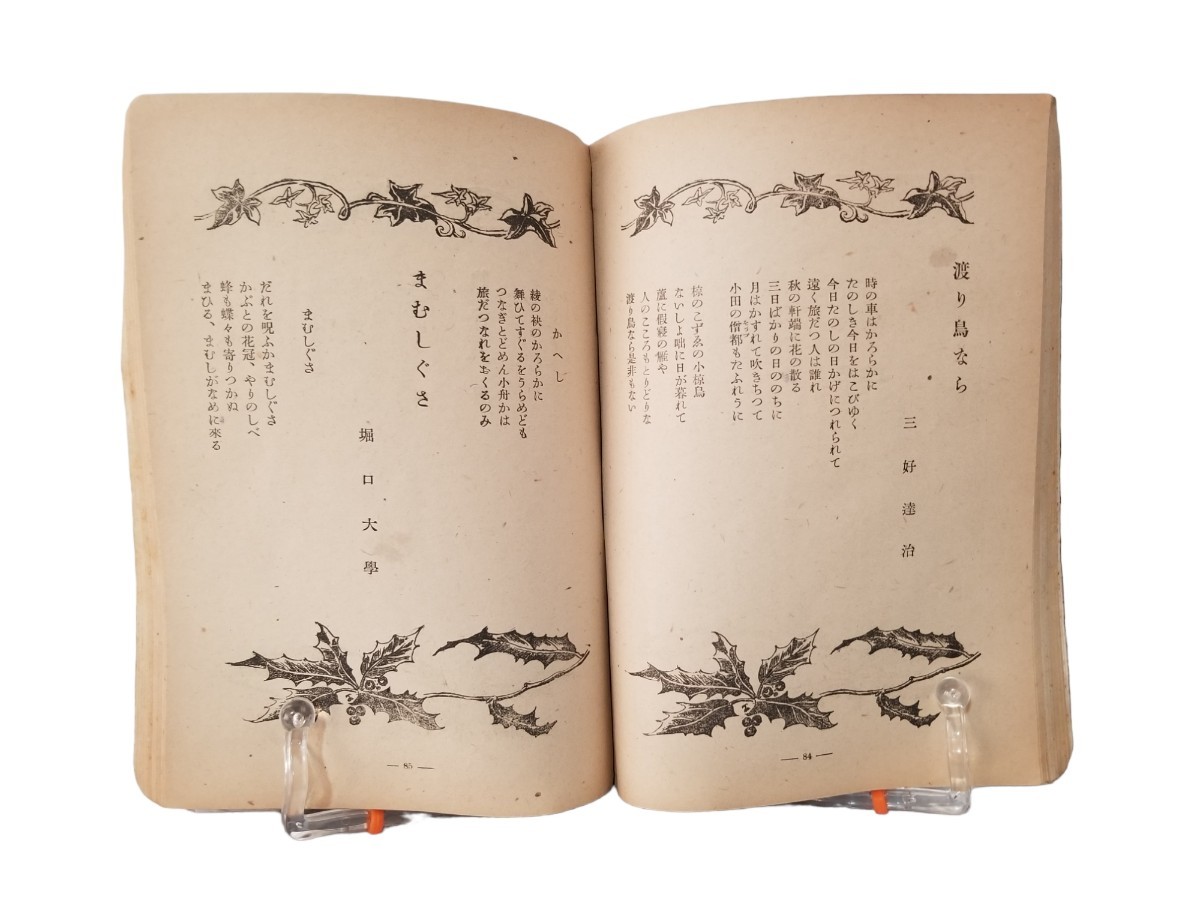 渡り鳥なら
三好達治
時の車はかろらかに
たのしき今日をはこびゆく
今日たのしの日かげにつれられて
遠く旅だつ人は誰れ
秋の軒端に花の散る
三日ばかりの日ののちに
月はかすれて吹きちつて
小田の僧都もたふれうに
椋のこずゑの小椋鳥
ないしよ咄に日が暮れて
蘆に假寝の雁や
人のこころもとりどりな
渡り鳥なら是非もない
— 84 —
かへし
綾の袂のかろらかに
舞ひてすぐるをうらめども
つなぎとどめん小舟かは
旅だつなれをおくるのみ
まむしぐさ
堀口大學
まむしぐさ
だれを呪ふかまむしぐさ
かぶとの花冠、やりのしべ
蜂も蝶々も寄りつかぬ
まひる、まむしがなめに來る
— 85 —